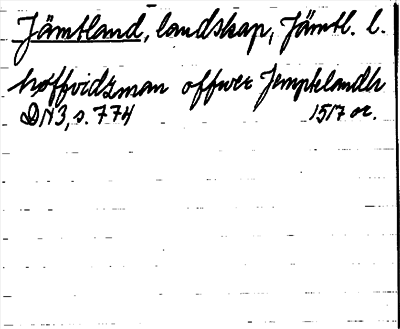 Jämtland, landskap, Jämtl. l.
høffvidzman offwer Jempklandh
DN3, s. 774 1517 or.